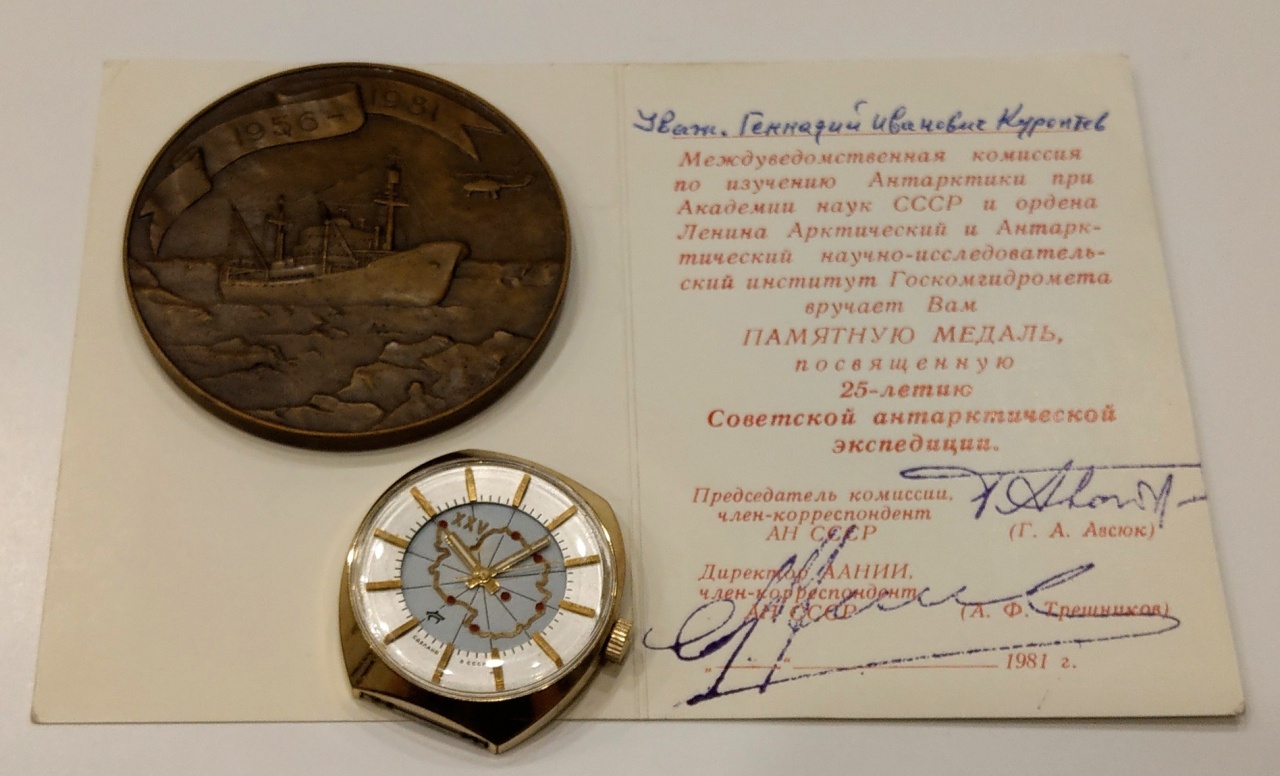 1956-1981
Уваж. Геннадий Иванович Куроптев
Междуведомственная комиссия
по изучению Антарктики при
Академии наук СССР и ордена
Ленина Арктический и Антарк-
тический научно-исследователь-
ский институт Госкомгидромета
вручает Вам
ПАМЯТНУЮ МЕДАЛЬ,
посвященную
25-летию
Советской антарктической
экспедиции.
Председатель комиссии,
член-корреспондент
АН СССР
(Г. А. Авсюк)
Директор ААНИИ,
член-корреспондент
АН СССР
(А. Ф. Трешников)
„ “ 1981 г.
XXV
СДЕЛАНО В СССР